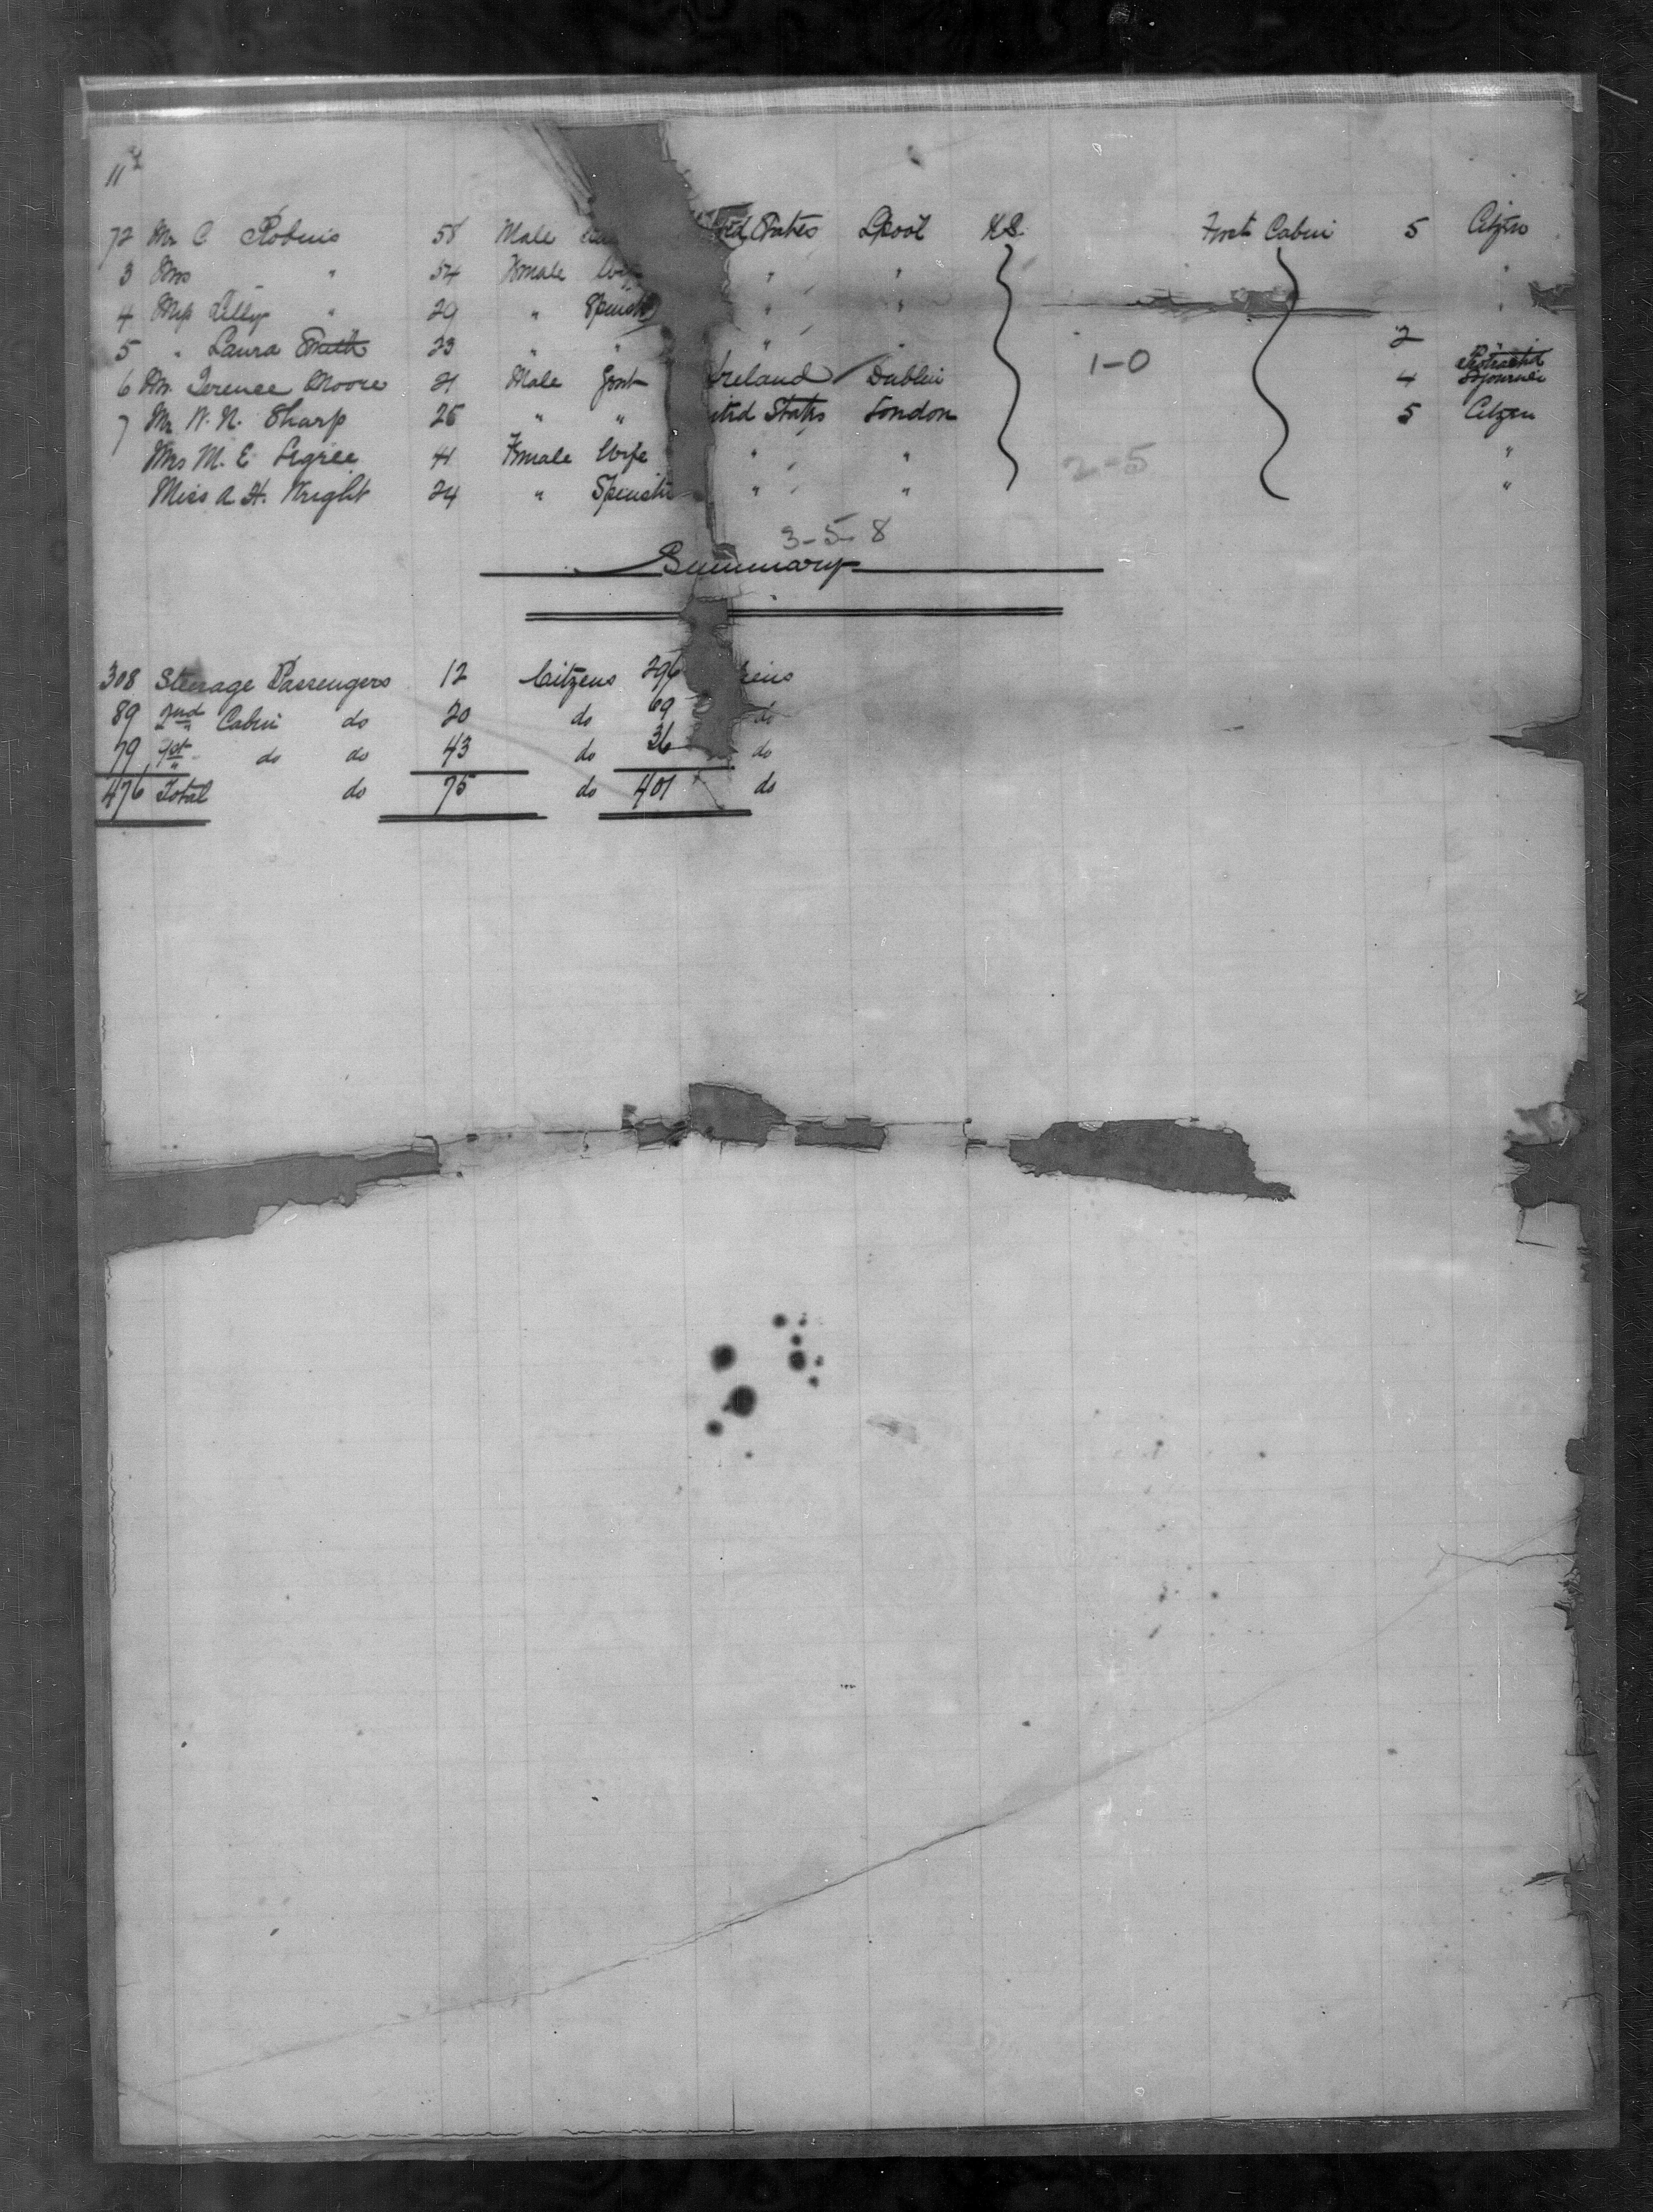 11
72 Mr C Robins 58 Male ted States Lpool U.S. First Cabin 5 Citzen
3 Mrs " 54 Female Wife " " "
4 Miss Lilly " 29 " Spinst " " "
5 " Laura Smith 23 " " " " 2
6 Mr. Terence Moore 21 Male Gent Ireland Dublin 1-0 4 Protracted Sojourner
7 Mr W. N. Sharp 25 " " ited States London 5 Citzen
Mrs M. E. Legree 41 Female Wife " " 2-5 "
Miss A H. Wright 24 " Spinster " " "
3-5-8
Summary
308 Steerage Passengers 12 Citzens 296 iens
89 2nd Cabin do 20 do 69 do
79 1st do do 43 do 36 do
476 Total do 75 do 401 do